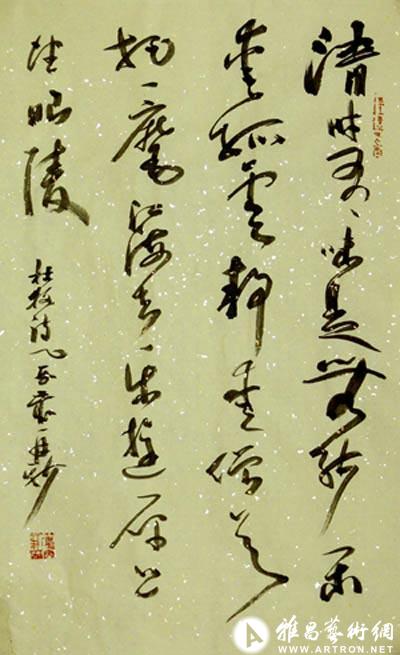 清时有味是無能闲
爱孤雲静爱僧欲
把一麾江海去乐遊原上
望昭陵
杜牧诗一首
雅昌藝術網
WWW.ARTRON.NET